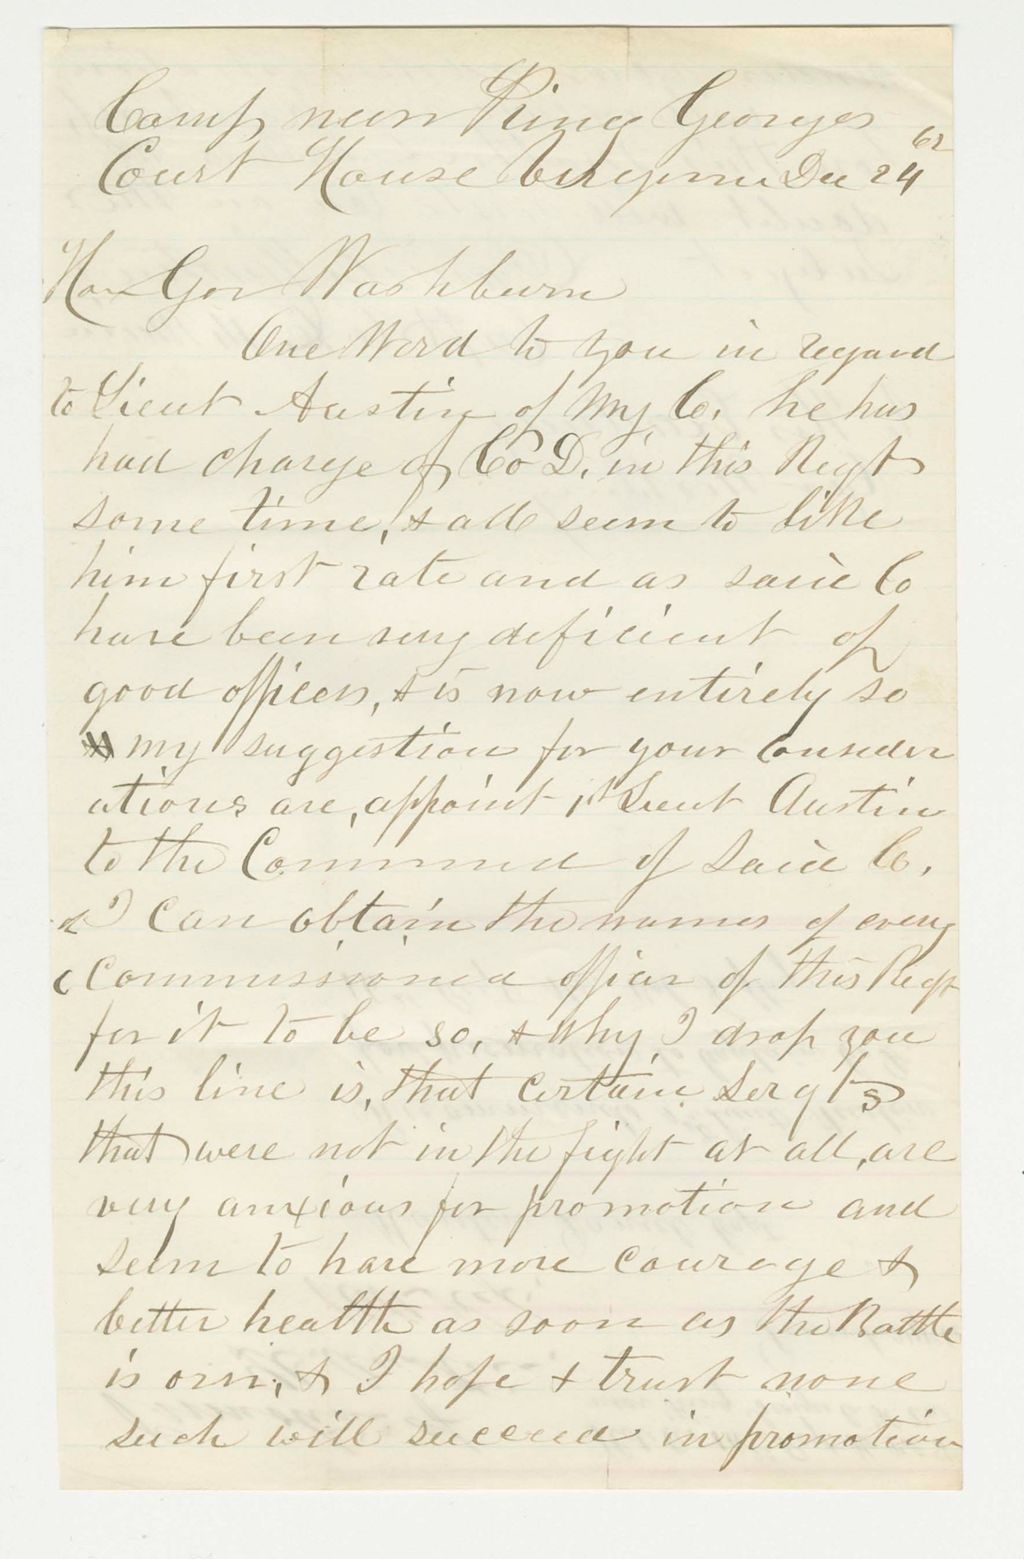 Camp near King Georges
Court House Virginia Dec 24 62
Hon Gov Washburn
One Word to you in regard
to Lieut Austin of My Co. he has
had charge of Co D. in this Regt
some time, & all seem to like
him first rate and as said Co
have been very deficient of
good officers, & is now entirely so
my suggestion for your consider
ations are, appoint 1st Lieut Austin
to the Command of said Co.
& I can obtain the names of every
Commissioned officer of this Regt
for it to be so, & why I drop you
this line is, that certain Sergts
that were not in the fight at all, are
very anxious for promotion and
seem to have more courage &
better health as soon as the Battle
is over, & I hope & trust none
such will succeed in promotion